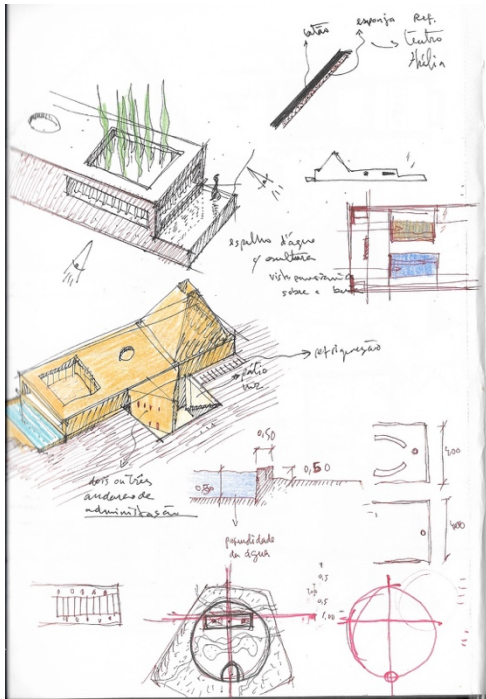 latão esponja Ref.
teatro
Thália
espelho d'água
escultura
vista panorâmica
sobre o
refrigeração
pátio
luz
dois ou três
andares de
administração
0,50
0,50
0,50
profundidade
da água
400
400
0,5
0,5
1,00